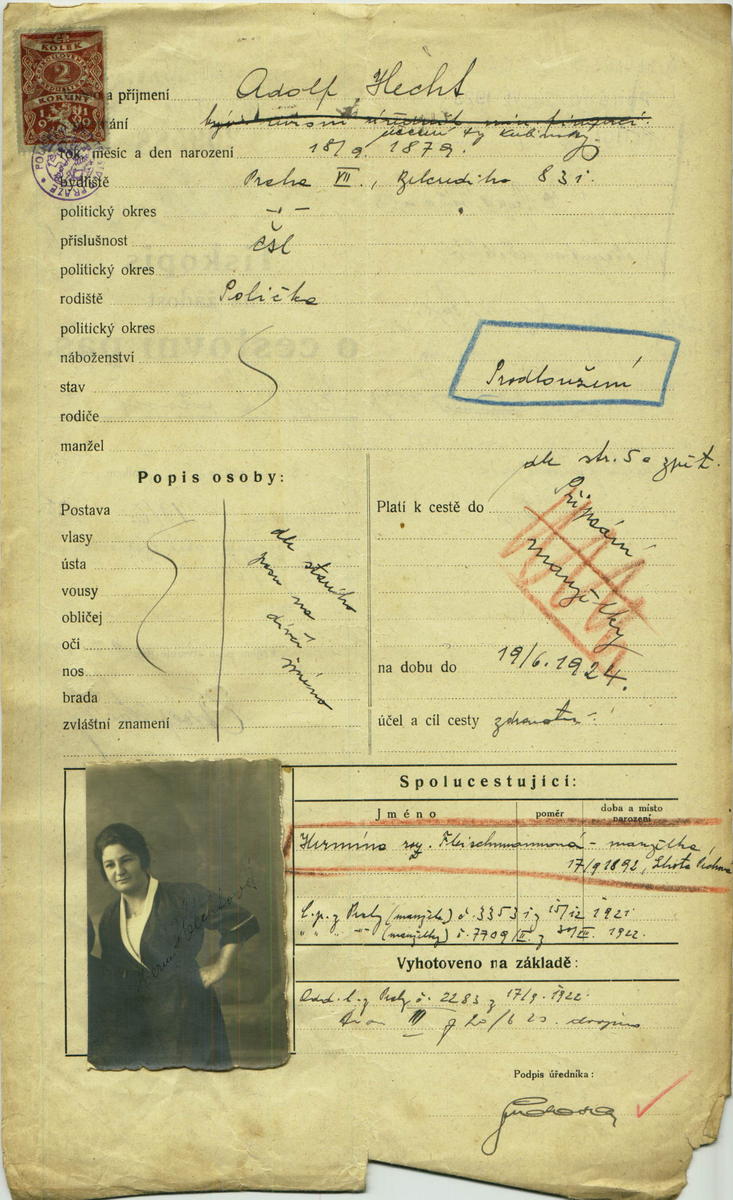 KOLEK
2
KORUNY
a příjmení Adolf Hecht
rok, měsíc a den narození 18/9. 1879.
bydliště Praha VII., Belcrediho 831.
politický okres -"-
příslušnost čsl
politický okres
rodiště Polička
politický okres
náboženství
stav
rodiče
manžel
Prodloužení
Popis osoby:
Postava
vlasy
ústa
vousy
obličej
oči
nos
brada
zvláštní znamení
dle starého
pasu na
dívčí
jméno
dle str. 5 a zpět.
Platí k cestě do Připsání
manželky
na dobu do 19/6. 1924.
účel a cíl cesty
Spolucestující:
Jméno poměr doba a místo
narození
Hermína roz. Fleischmannová - manželka,
17/9 1892, Lhota
c. p. z Prahy (manžela) č. 33531 z 15/12 1921
" " " -"- (manželky) č. 7709/II z VIII. 1922.
Vyhotoveno na základě:
č. 2283 z 17/9. 1922.
Podpis úředníka: